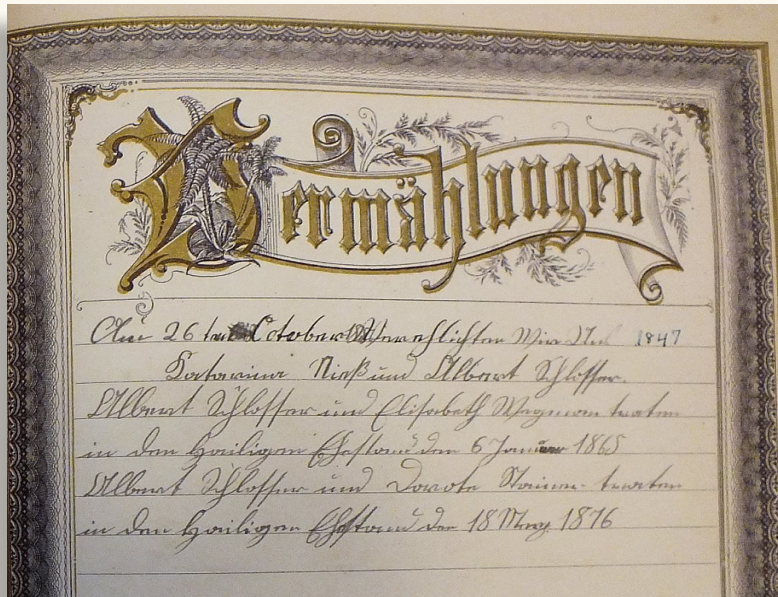 Vermählungen
Am 26 ten October Verehlichten Wir Uns 1847
Catarina Nieß und Albert Schlosser.
Albert Schlosser und Elisabeth Wegmann traten
in den Heiligen Ehestand den 6 Januar 1865
Albert Schlosser und Dorote Steiner traten
in den Heiligen Ehestand den 18 May 1876